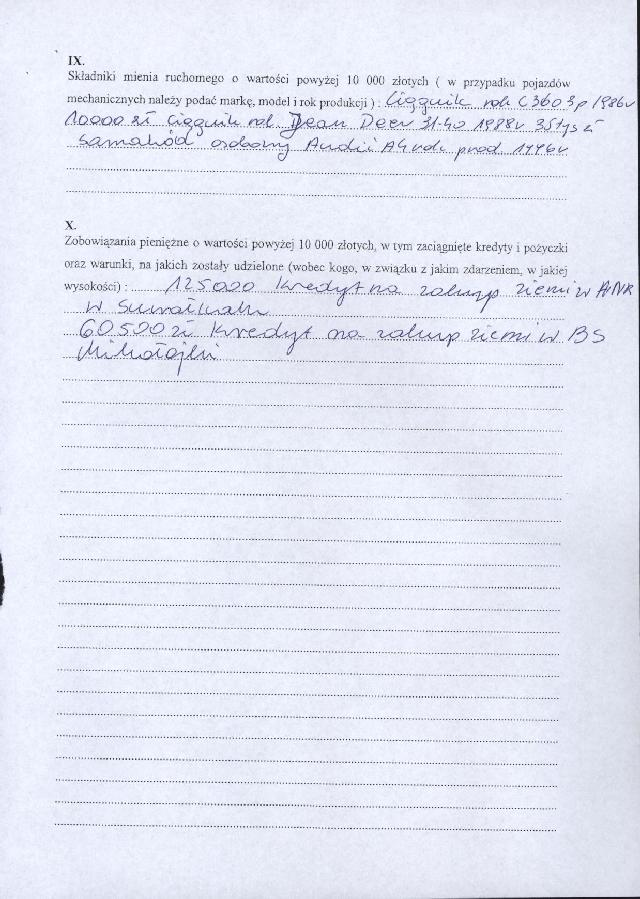 IX.
Składniki mienia ruchomego o wartości powyżej 10 000 złotych ( w przypadku pojazdów
mechanicznych należy podać markę, model i rok produkcji ) : Ciągnik rol C 360 3p 1986r
10000 zł Ciągnik rol. Jean Deer 31-40 1988r 35tyś zł
samochód osobowy Audii A4 rok prod 1996r
X.
Zobowiązania pieniężne o wartości powyżej 10 000 złotych, w tym zaciągnięte kredyty i pożyczki
oraz warunki, na jakich zostały udzielone (wobec kogo, w związku z jakim zdarzeniem, w jakiej
wysokości) : 125000 kredyt na zakup ziemi w ANR
w Suwałkach
60500 zł kredyt na zakup ziemi w BS
Mikołajki